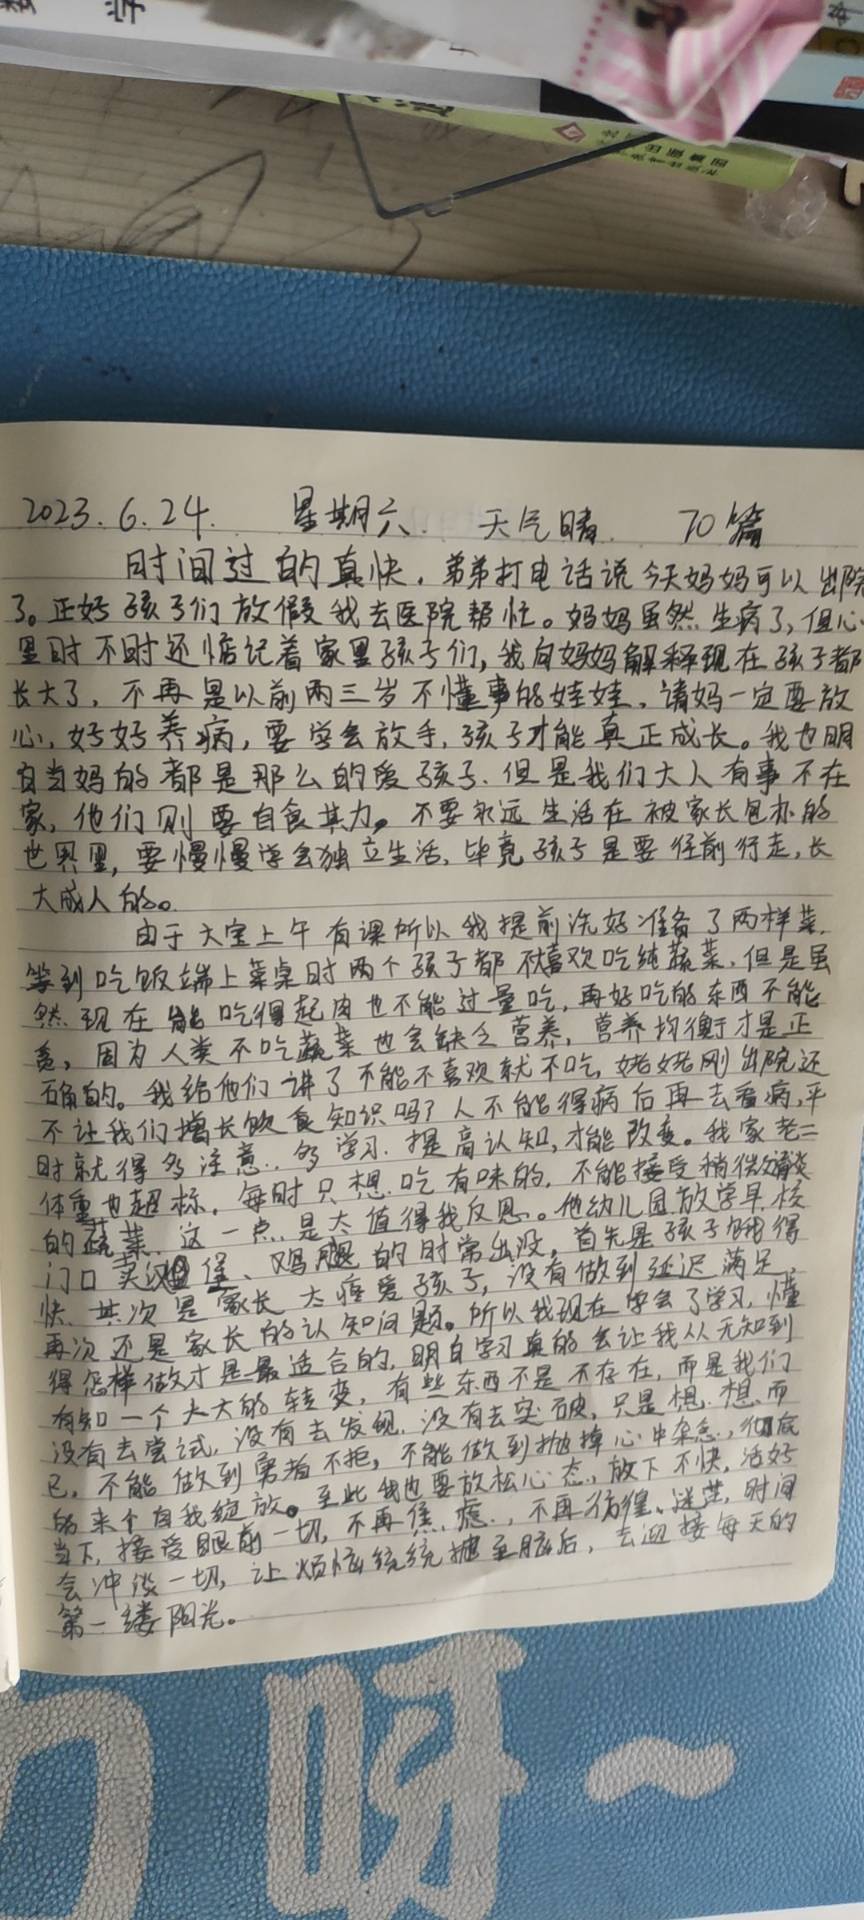 学
出版集团
2023.6.24. 星期六. 天气晴. 70篇
时间过的真快，弟弟打电话说今天妈妈可以出院
了。正好孩子们放假我去医院帮忙。妈妈虽然生病了，但心
里时不时还惦记着家里孩子们，我向妈妈解释现在孩子都
长大了，不再是以前两三岁不懂事的娃娃，请妈一定要放
心，好好养病，要学会放手，孩子才能真正成长。我也明
白当妈的都是那么的爱孩子，但是我们大人有事不在
家，他们则要自食其力。不要永远生活在被家长包办的
世界里，要慢慢学会独立生活，毕竟孩子是要往前行走，长
大成人的。
由于大宝上午有课所以我提前洗好准备了两样菜，
等到吃饭端上菜桌时两个孩子都不喜欢吃纯蔬菜，但是虽
然现在能吃得起肉也不能过量吃，再好吃的东西不能
贪，因为人类不吃蔬菜也会缺乏营养，营养均衡才是正
确的。我给他们讲了不能不喜欢就不吃，姥姥刚出院还
不让我们增长饮食知识吗？人不能得病后再去看病，平
时就得多注意，多学习，提高认知，才能改变。我家老二
体重也超标，每时只想吃有味的，不能接受稍微清淡
的蔬菜，这一点是太值得我反思。他幼儿园放学早，校
门口卖汉堡、鸡腿的时常出没，首先是孩子饿得
快，其次是家长太疼爱孩子，没有做到延迟满足，
再次还是家长的认知问题。所以我现在学会了学习，懂
得怎样做才是最适合的，明白学习真的会让我从无知到
有知一个大大的转变，有些东西不是不存在，而是我们
没有去尝试，没有去发现，没有去突破，只是想想而
已，不能做到勇者不拒，不能做到抛掉心中杂念，彻底
的来个自我绽放。至此我也要放松心态，放下不快，活好
当下，接受眼前一切，不再焦虑，不再彷徨、迷茫，时间
会冲淡一切，让烦恼统统抛至脑后，去迎接每天的
第一缕阳光。
呀~